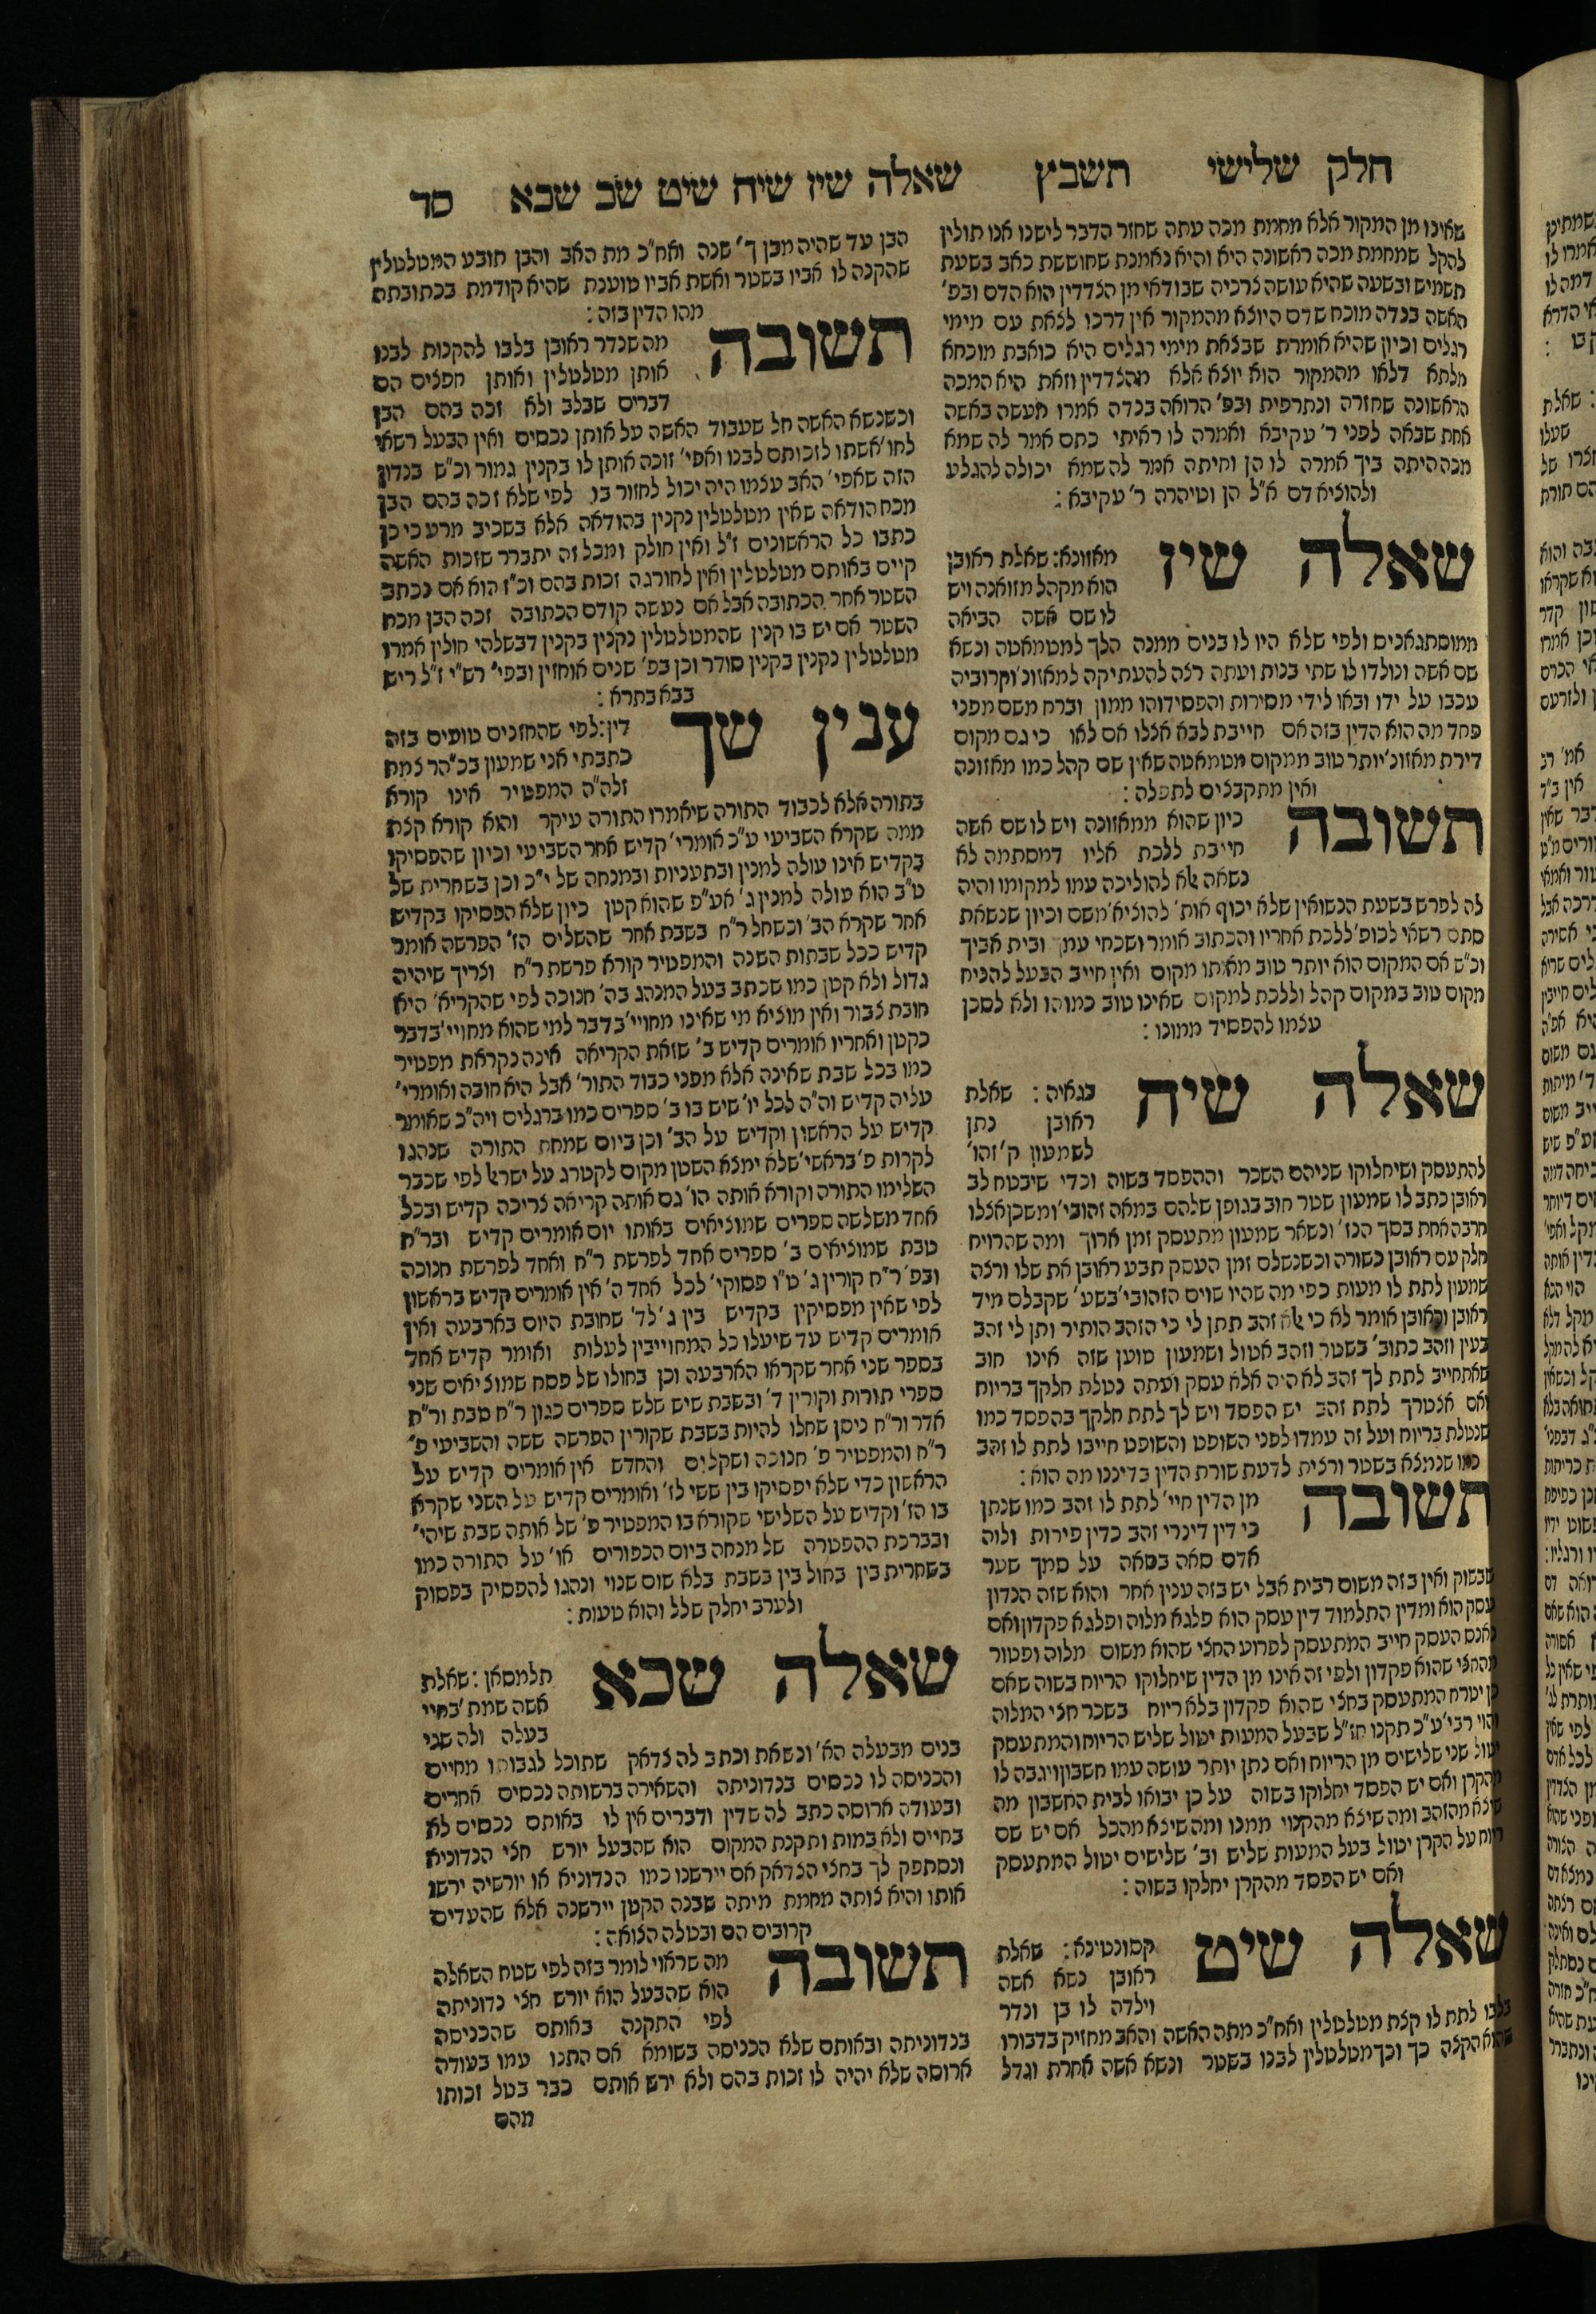 חלק שלישי תשבץ שאלה שיז שיח שיט שכ שכא סד
שאינו מן המקור אלא מחמת מכה עתה שחזר הדבר לישנו אנו תולין
להקל שמחמת מכה ראשונה היא והיא נאמנת שחוששת כאב בשעת
תשמיש ובשעה שהיא עושה צרכיה שבודאי מן הצדדין הוא הדם ובפ'
האשה בנדה מוכח שדם היוצא מהמקור אין דרכו לצאת עם מימי
רגלים וכיון שהיא אומרת שבצאת מימי רגלים היא כואבת מוכחא
מלתא דלאו מהמקור הוא יוצא אלא מהצדדין וזאת היא המכה
הראשונה שחזרה ונתרפית ובפ' הרואה בנדה אמרו מעשה באשה
אחת שבאה לפני ר' עקיבא ואמרה לו ראיתי כתם אמר לה שמא
מכה היתה ביך אמרה לו הן וחיתה אמר לה שמא יכולה להגלע
ולהוציא דם א"ל הן וטיהרה ר' עקיבא :
שאלה שיז
מאזונא: שאלת ראובן
הוא מקהל מזואנה ויש
לו שם אשה הביאה
ממוסתגאנים ולפי שלא היו לו בנים ממנה הלך למטמאטה ונשא
שם אשה ונולדו לו שתי בנות ועתה רצה להעתיקה למאזונ' וקרוביה
עכבו על ידו ובאו לידי מסירות והפסידוהו ממון וברח משם מפני
פחד מה הוא הדין בזה אם חייבת לבא אצלו אם לאו כי גם מקום
דירת מאזונ' יותר טוב ממקום מטמאטה שאין שם קהל כמו מאזונה
ואין מתקבצים לתפלה :
תשובה
כיון שהוא ממאזונה ויש לו שם אשה
חייבת ללכת אליו דמסתמה לא
נשאה אלא להוליכה עמו למקומו והיה
לה לפרש בשעת הנשואין שלא יכוף אות' להוציא' משם וכיון שנשאת
סתם רשאי לכופ' ללכת אחריו והכתוב אומר ושכחי עמך ובית אביך
וכ"ש אם המקום הוא יותר טוב מאותו מקום ואין חייב הבעל להניח
מקום טוב במקום קהל וללכת למקום שאינו טוב כמוהו ולא לסכן
עצמו להפסיד ממונו :
שאלה שיח
בגאיה : שאלת
ראובן נתן
לשמעון ק' זהו'
להתעסק ושיחלוקו שניהם השכר וההפסד בשוה וכדי שיבטח לב
ראובן כתב לו שמעון שטר חוב בגופן שלהם במאה זהובי' ומשכן אצלו
חרבה אחת בסך הנז' ונשאר שמעון מתעסק זמן ארוך ומה שהרויח
חלק עם ראובן כשורה וכשנשלם זמן העסק תבע ראובן את שלו ורצה
שמעון לתת לו מעות כפי מה שהיו שוים הזהובי' בשע' שקבלם מיד
ראובן וראובן אומר לא כי אלא זהב תתן לי כי הזהב הותיר ותן לי זהב
בעין וזהב כתוב' בשטר וזהב אטול ושמעון טוען שזה אינו חוב
שאתחייב לתת לך זהב לא היה אלא עסק ועתה נטלת חלקך בריוח
ואם אצטרך לתת זהב יש הפסד ויש לך לתת חלקך בהפסד כמו
שנטלת בריוח ועל זה עמדו לפני השופט והשופט חייבו לתת לו זהב
כמו שנמצא בשטר ורצית לדעת שורת הדין בדיננו מה הוא :
תשובה
מן הדין חיי' לתת לו זהב כמו שנתן
כי דין דינרי זהב כדין פירות ולוה
אדם סאה בסאה על סמך שער
שבשוק ואין בזה משום רבית אבל יש בזה ענין אחר והוא שזה הנדון
עסק הוא ומדין התלמוד דין עסק הוא פלגא מלוה ופלגא פקדון ואם
נאנס העסק חייב המתעסק לפרוע החצי שהוא משום מלוה ופטור
מהחצי שהוא פקדון ולפי זה אינו מן הדין שיחלוקו הריוח בשוה שאם
כן יטרח המתעסק בחצי שהוא פקדון בלא ריוח בשכר חצי המלוה
והוי רבי' ע"כ תקנו חז"ל שבעל המעות יטול שליש הריוח והמתעסק
יטול שני שלישים מן הריוח ואם נתן יותר עושה עמו חשבון ויגבה לו
מהקרן ואם יש הפסד יחלוקו בשוה על כן יבואו לבית החשבון מה
שיצא מהזהב ומה שיצא מהקנוי ממנו ומה שיצא מהכל אם יש שם
ריוח על הקרן יטול בעל המעות שליש וב' שלישים יטול המתעסק
ואם יש הפסד מהקרן יחלקו בשוה :
שאלה שיט
קסונטינא: שאלת
ראובן נשא אשה
וילדה לו בן ונדר
בלבו לתת לו קצת מטלטלין ואח"כ מתה האשה והאב מחזיק בדבורו
שהוא הקצה כך וכך מטלטלין לבנו בשטר ונשא אשה אחרת וגדל
הבן עד שהיה מבן ך' שנה ואח"כ מת האב והבן תובע המטלטלין
שהקנה לו אביו בשטר ואשת אביו טוענת שהיא קודמת בכתובתה
מהו הדין בזה :
תשובה
מה שנדר ראובן בלבו להקנות לבנו
אותן מטלטלין ואותן חפצים הם
דברים שבלב ולא זכה בהם הבן
וכשנשא האשה חל שעבוד האשה על אותן נכסים ואין הבעל רשאי
לחו' אשתו לזכותם לבנו ואפי' זוכה אותן לו בקנין גמור וכ"ש בנדון
הזה שאפי' האב עצמו היה יכול לחזור בו לפי שלא זכה בהם הבן
מכח הודאה שאין מטלטלין נקנין בהודאה אלא בשכיב מרע כי כן
כתבו כל הראשונים ז"ל ואין חולק ומכל זה יתברר שזכות האשה
קיים באותם מטלטלין ואין לחורגה זכות בהם וכ"ז הוא אם נכתב
השטר אחר הכתובה אבל אם נעשה קודם הכתובה זכה הבן מכח
השטר אם יש בו קנין שהמטלטלין נקנין בקנין דבשלהי חולין אמרו
מטלטלין נקנין בקנין סודר וכן בפ' שנים אוחזין ובפי' רש"י ז"ל ריש
בבא בתרא :
ענין שך
דין: לפי שהחזנים טועים בזה
כתבתי אני שמעון בכ"הר צמח
זלה"ה המפטיר אינו קורא
בתורה אלא לכבוד התורה שיאמרו התורה עיקר והוא קורא קצת
ממה שקרא השביעי ע"כ אומרי' קדיש אחר השביעי וכיון שהפסיקו
בקדיש אינו עולה למנין ובתעניות ובמנחה של י"כ וכן בשחרית של
ט"ב הוא עולה למנין ג' אע"פ שהוא קטן כיון שלא הפסיקו בקדיש
אחר שקרא הב' וכשחל ר"ח בשבת אחר שהשלים הז' הפרשה אומר
קדיש ככל שבתות השנה והמפטיר קורא פרשת ר"ח וצריך שיהיה
גדול ולא קטן כמו שכתב בעל המנהג בה' חנוכה לפי שהקריא' היא
חובת צבור ואין מוציא מי שאינו מחויי' בדבר למי שהוא מחויי' בדבר
כקטן ואחריו אומרים קדיש ב' שזאת הקריאה אינה נקראת מפטיר
כמו בכל שבת שאינה אלא מפני כבוד התור' אבל היא חובה ואומרי'
עליה קדיש וה"ה לכל יו' שיש בו ב' ספרים כמו ברגלים ויה"כ שאומר
קדיש על הראשון וקדיש על הב' וכן ביום שמחת התורה שנהגו
לקרות פ' בראשי' שלא ימצא השטן מקום לקטרג על ישראל לפי שכבר
השלימו התורה וקורא אותה הו' גם אותה קריאה צריכה קדיש ובכל
אחד משלשה ספרים שמוציאים באותו יום אומרים קדיש ובר"ח
טבת שמוציאים ב' ספרים אחד לפרשת ר"ח ואחד לפרשת חנוכה
ובפ' ר"ח קורין ג' ט"ו פסוקי' לכל אחד ה' אין אומרים קדיש בראשון
לפי שאין מפסיקין בקדיש בין ג' לד' שחובת היום בארבעה ואין
אומרים קדיש עד שיעלו כל המחוייבין לעלות ואומר קדיש אחד
בספר שני אחר שקראו הארבעה וכן בחולו של פסח שמוציאים שני
ספרי תורות וקורין ד' ובשבת שיש שלש ספרים כגון ר"ח טבת ור"ח
אדר ור"ח ניסן שחלו להיות בשבת שקורין הפרשה ששה והשביעי פ'
ר"ח והמפטיר פ' חנוכה ושקלים והחדש אין אומרים קדיש על
הראשון כדי שלא יפסיקו בין ששי לז' ואומרים קדיש על השני שקרא
בו הז' וקדיש על השלישי שקורא בו המפטיר פ' של אותה שבת שיהי'
ובברכת ההפטרה של מנחה ביום הכפורים או' על התורה כמו
בשחרית בין בחול בין בשבת בלא שום שנוי ונהגו להפסיק בפסוק
ולערב יחלק שלל והוא טעות :
שאלה שכא
תלמסאן: שאלת
אשה שמת' בחיי
בעלה ולה שני
בנים מבעלה הא' ונשאת וכתב לה צדאק שתוכל לגבותו מחיים
והכניסה לו נכסים בנדוניתה והשאירה ברשותה נכסים אחרים
ובעודה ארוסה כתב לה שדין ודברים אין לו באותם נכסים לא
בחיים ולא במות ותקנת המקום הוא שהבעל יורש חצי הנדוניא
ונסתפק לך בחצי הצדאק אם יירשנו כמו הנדוניא או יורשיה ירשו
אותו והיא צותה מחמת מיתה שבנה הקטן יירשנה אלא שהעדים
קרובים הם ובטלה הצואה :
תשובה
מה שראוי לומר בזה לפי שטח השאלה
הוא שהבעל הוא יורש חצי נדוניתה
לפי התקנה באותם שהכניסה
בנדוניתה ובאותם שלא הכניסה בשומא אם התנו עמו בעודה
ארוסה שלא יהיה לו זכות בהם ולא ירש אותם כבר בטל זכותו
מהם